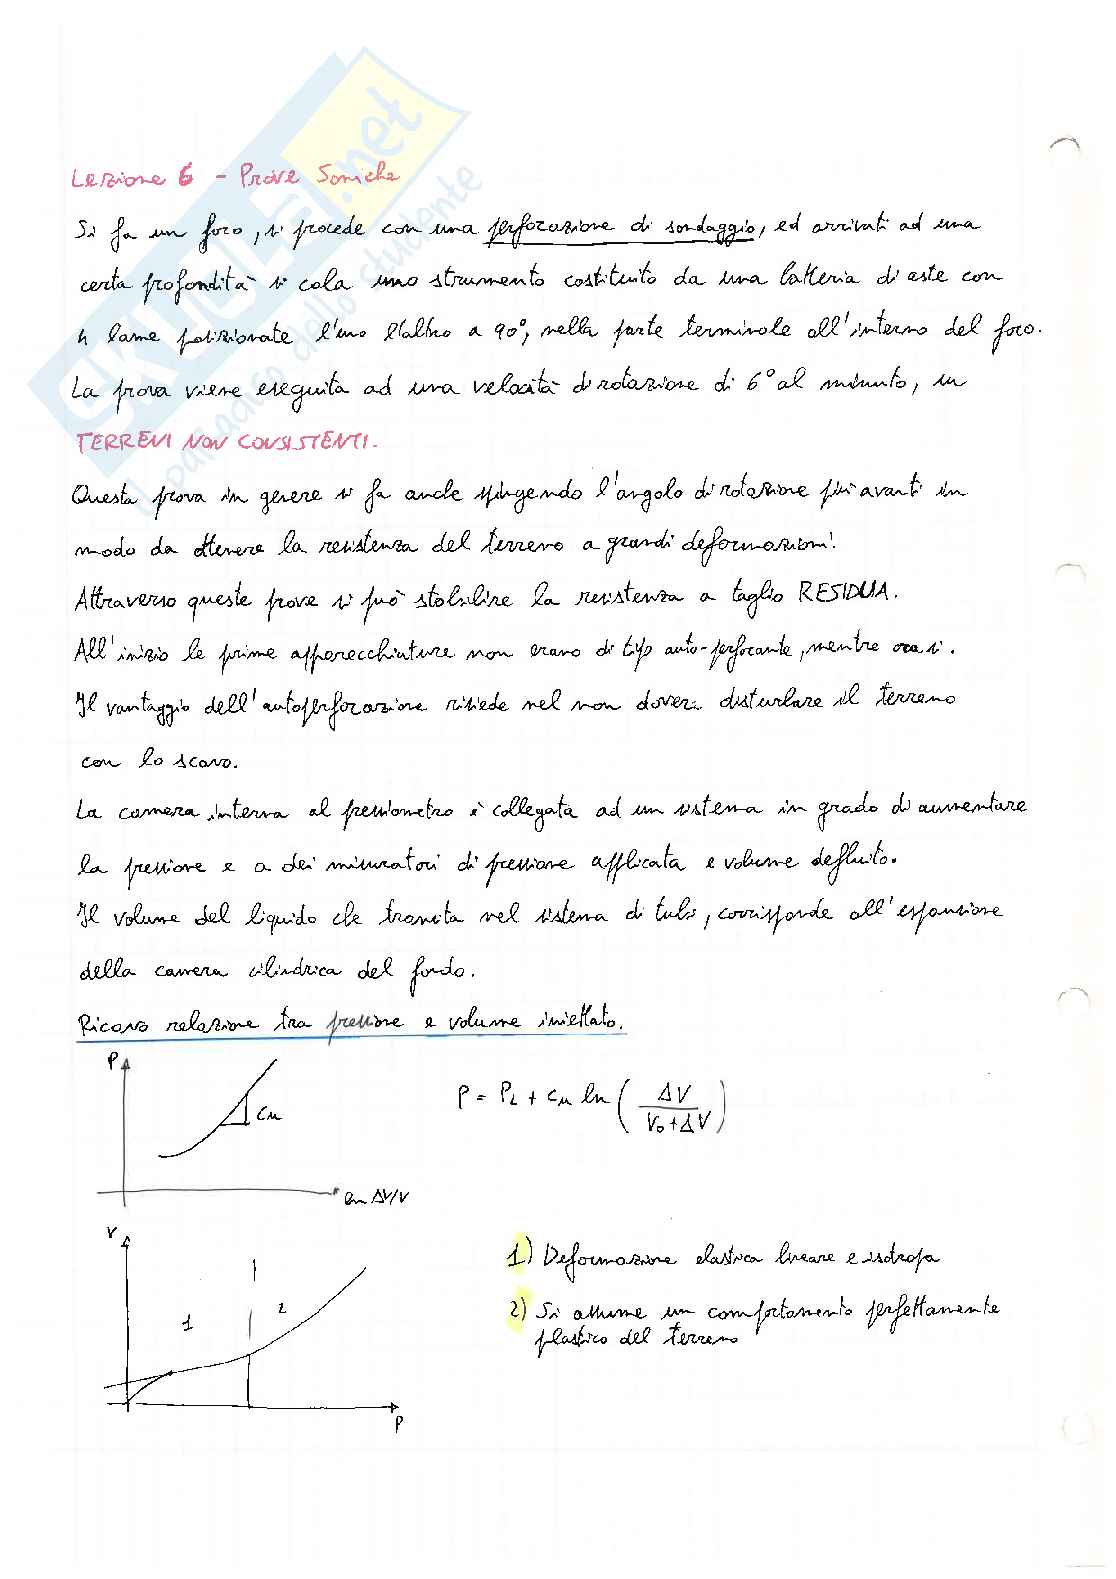 Lezione 6 - Prove Soniche
Si fa un foro, si procede con una perforazione di sondaggio, ed arrivati ad una
certa profondità si cala uno strumento costituito da una batteria di aste con
4 lame posizionate l'uno l'altro a 90°, nella parte terminale all'interno del foro.
La prova viene eseguita ad una velocità di rotazione di 6° al minuto, in
TERRENI NON CONSISTENTI.
Questa prova in genere si fa anche spingendo l'angolo di rotazione più avanti in
modo da ottenere la resistenza del terreno a grandi deformazioni.
Attraverso queste prove si può stabilire la resistenza a taglio RESIDUA.
All'inizio le prime apparecchiature non erano di tipo auto-perforante, mentre ora si.
Il vantaggio dell'autoperforazione risiede nel non dover disturbare il terreno
con lo scavo.
La camera interna al pressiometro è collegata ad un sistema in grado di aumentare
la pressione e a dei misuratori di pressione applicata e volume defluito.
Il volume del liquido che transita nel sistema di tubi, corrisponde all'espansione
della camera cilindrica del fondo.
Ricavo relazione tra pressione e volume iniettato.
P
cu
ln ΔV/V
P = PL + cu ln ( ΔV / V0+ΔV )
V
1
2
P
1) Deformazione elastica lineare e isotropa
2) Si assume un comportamento perfettamente
plastico del terreno
SKUOLA.net
il paradiso dello studente